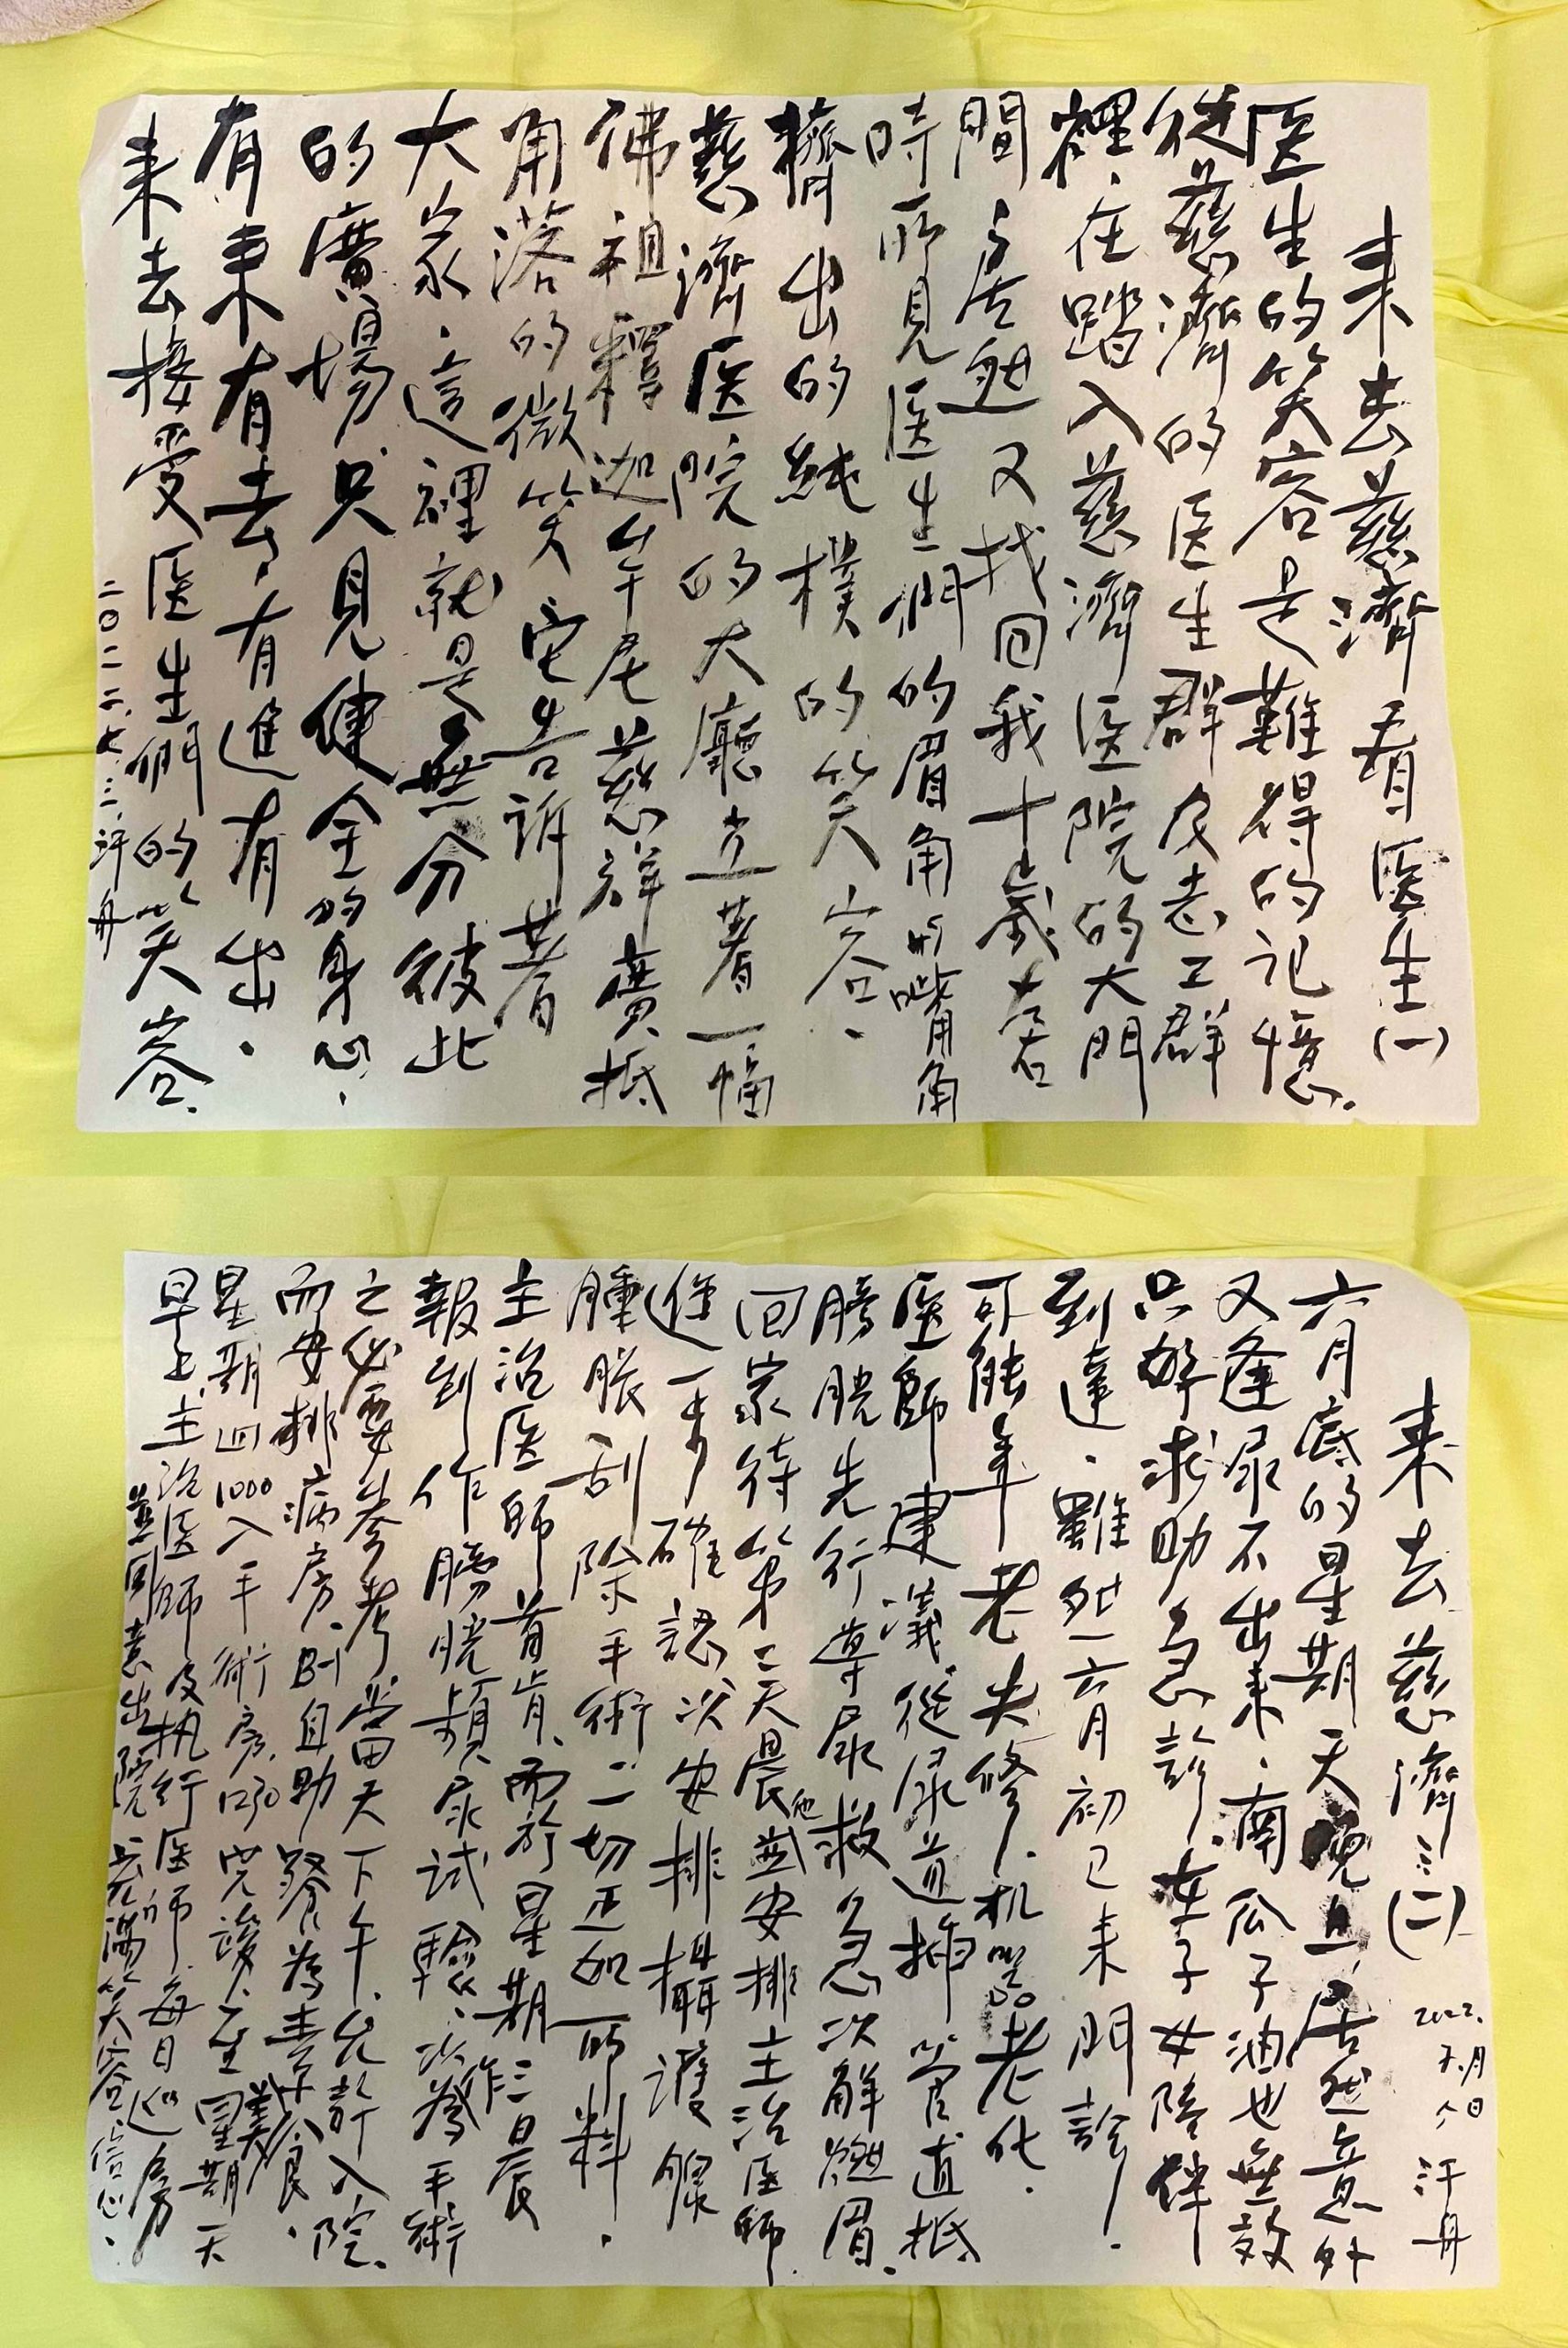 来去慈濟看医生(一)
医生的笑容是難得的記憶.
從慈濟的医生群及志工群
裡、在踏入慈濟医院的大門
間、居然又找回我十歲左右
時所見医生們的眉角的嘴角
擠出的純樸的笑容.
慈濟医院的大廳立著一幅
佛祖釋迦牟尼慈祥廣抵
角落的微笑它告訴著
大家.這裡就是無分彼此
的廣場.只見健全的身心.
有来有去,有進有出.
来去接受医生們的笑容.
二〇二二.七.三.汗舟
来去慈濟(二)
2022.7月 日 汗舟
六月底的星期天晚上,居然意外
又逢尿不出来.南瓜子油也無效
只好求助急診.妻子女陪伴
到達.雖然六月初已来門診.
可能年老失修.机器老化.
医師建議從尿道插管直抵
膀胱先行導尿救急次解燃眉.
回家待第二天晨他並安排主治医師
進一步確認次安排攝護腺
腫脹刮除手術.一切正如所料.
主治医師首肯.而於星期三晨
報到作膀胱頻尿試驗、以為作手術
之必要參考.當天下午.允許入院.
而安排病房.則自助餐為素食.
星期四1000入手術房.1230完竣.至星期天
早上.主治医師及执行医師.每日巡房
並同意出院.充滿笑容信心.